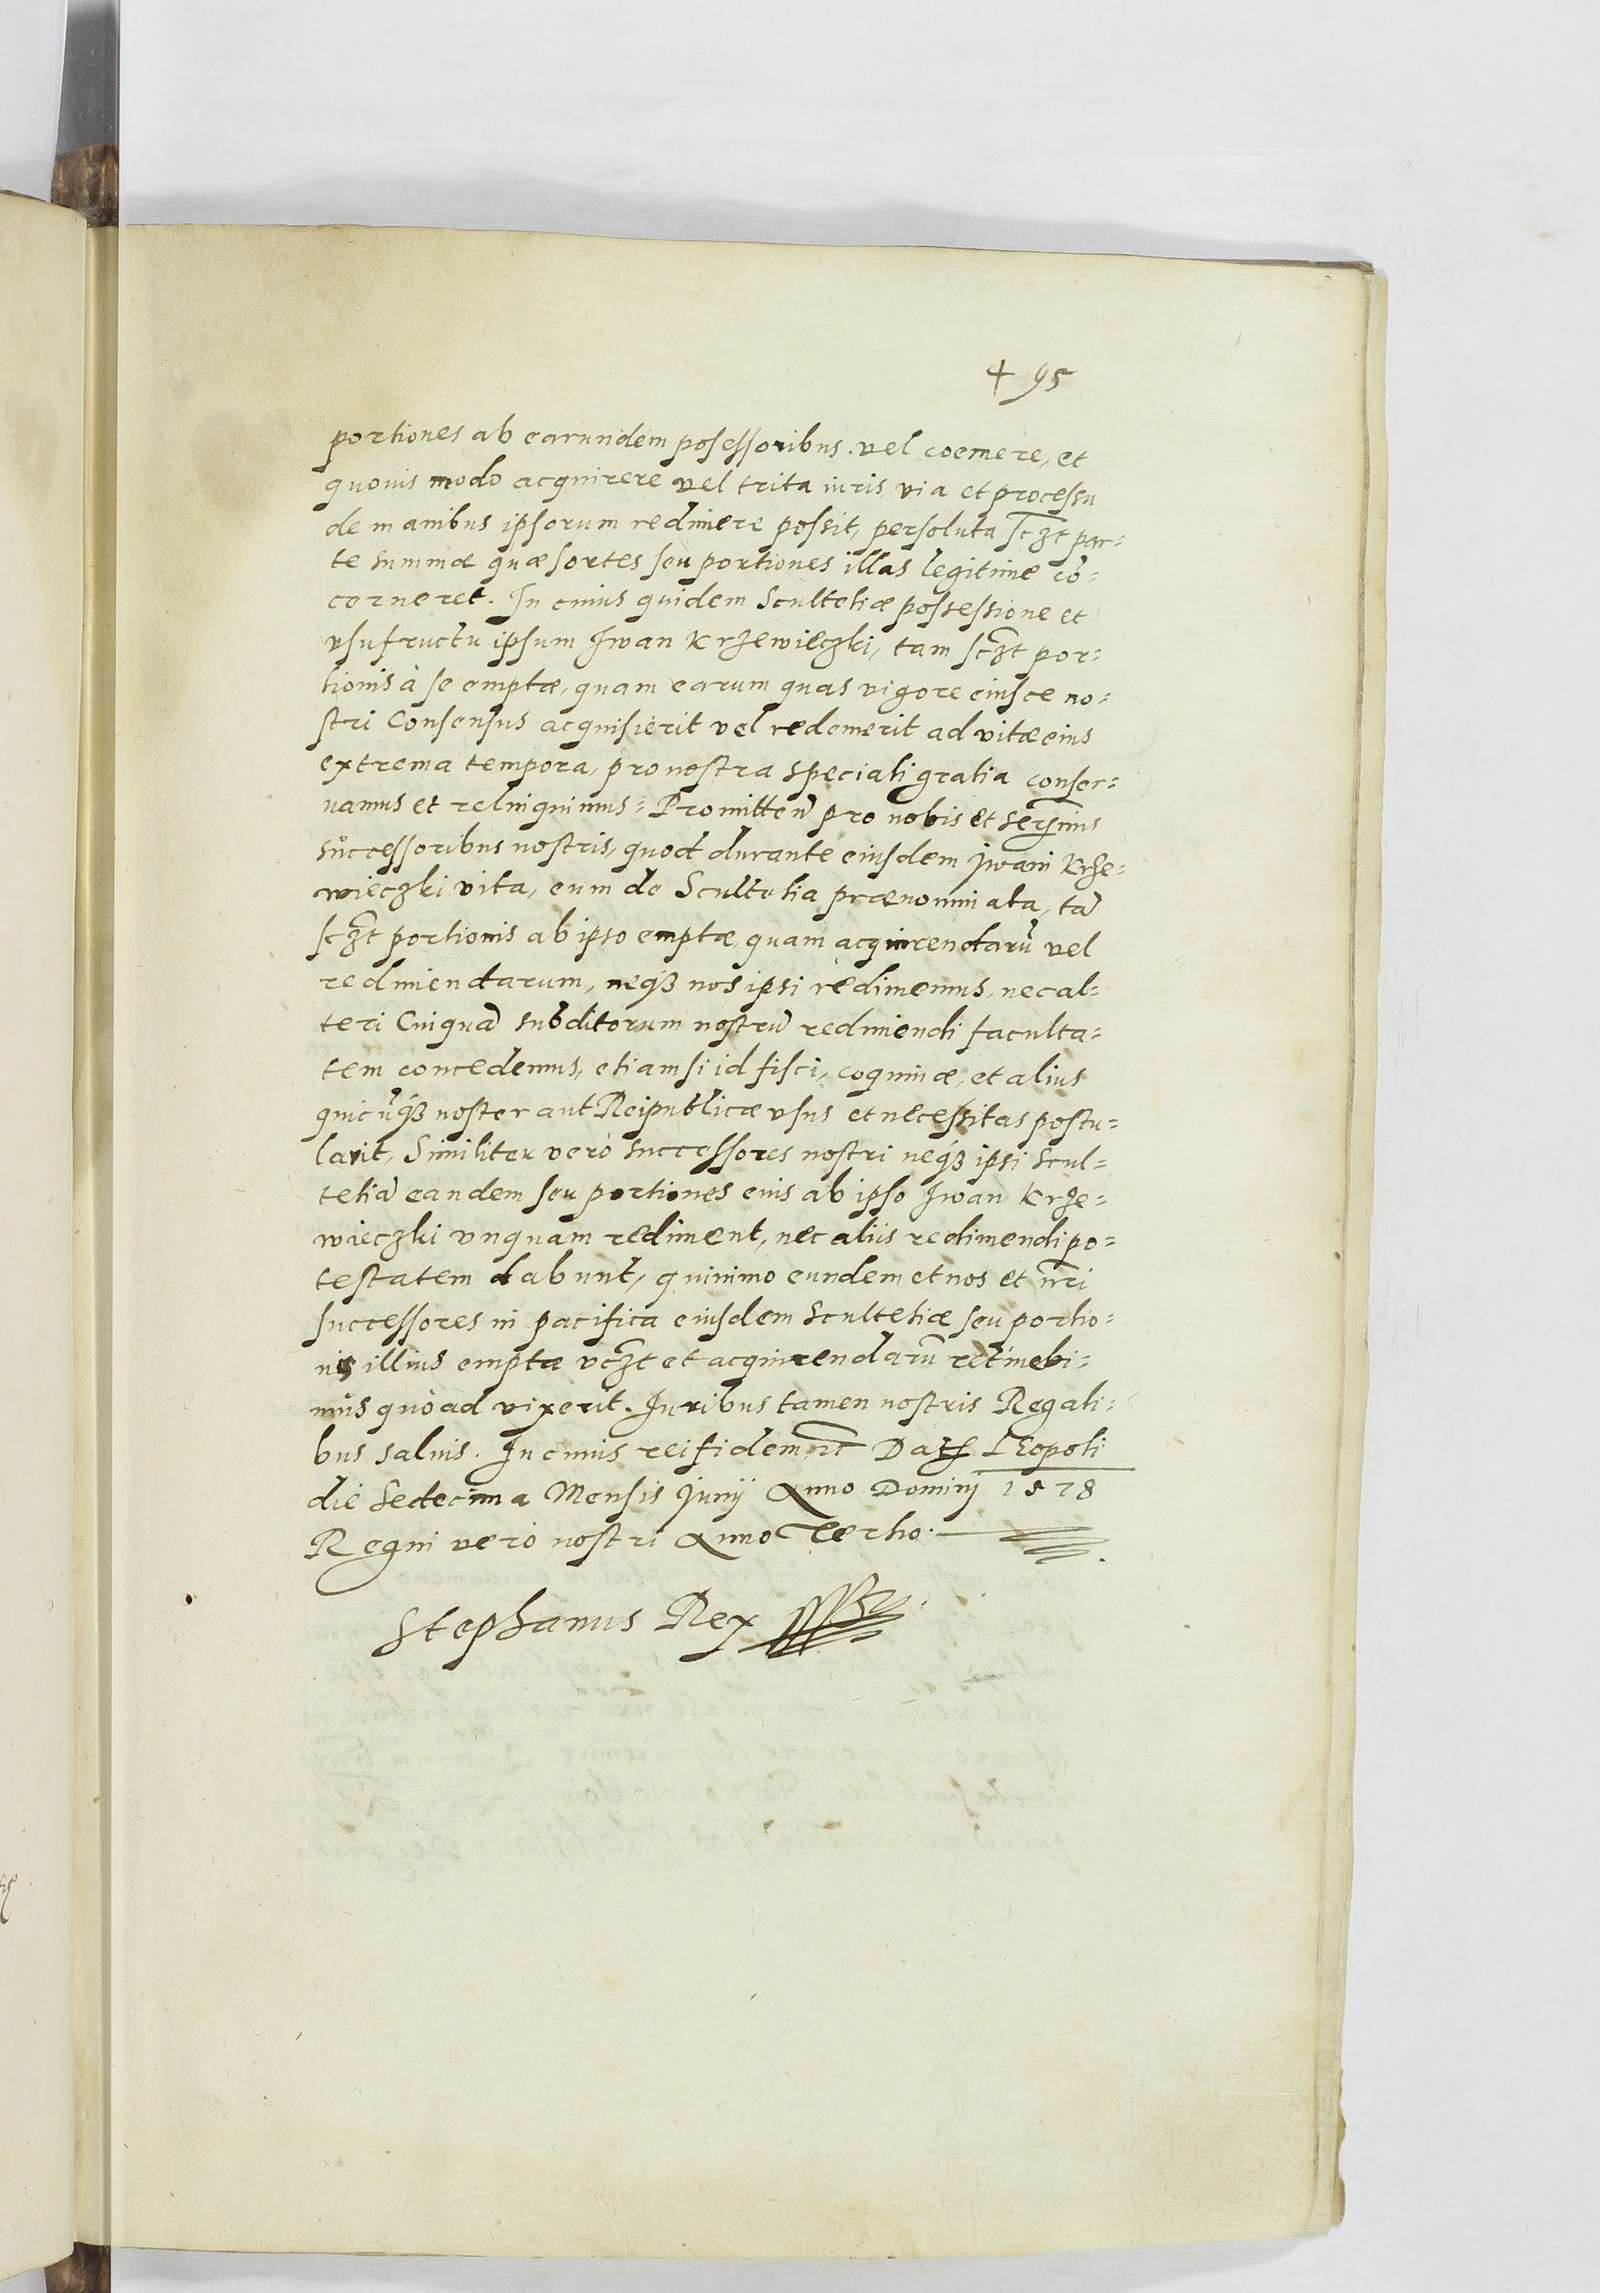 + 95
portiones ab earundem posessoribus. vel coemere, et
quouis modo acquirere vel trita iuris via et processu
de manibus ipsorum redimere possit, persoluta sczt par=
te summæ quæ sortes seu portiones illas legitime cō=
cerneret. In cuius quidem Scultetiæ possessione et
vsufructu ipsum Iwan Krzewieczki, tam sczt por=
tionis à se emptæ, quam earum quas vigore eiusce no=
stri Consensus acquisierit vel redemerit ad vitæ eius
extrema tempora, pro nostra speciali gratia conser=
uamus et relinquimus= Promitteñ pro nobis et serenimis
successoribus nostris, quod durante eiusdem Jwani Krze=
wieczki vita, eum de Scultetia prænominata, tā
sczt portionis ab ipso emptæ, quam acquirendarū vel
redimendarum, neqз nos ipsi redimemus, nec al=
teri Cuiquā subditorum nostrū redimendi faculta=
tem concedemus, etiamsi id fisci, coquinæ, et alius
quicūqз noster aut Reipublicæ vsus et necessitas postu=
larit, Similiter verò successores nostri neqз ipsi Scul=
tetiā eandem seu portiones eius ab ipso Iwan Krze=
wieczki vnquam rediment, nec aliis redimendi po=
testatem dabunt, quinimo eundem et nos et nr̄i
successores in pacifica eiusdem Scultetiæ seu portio=
nis illius emptæ vczt et acquirendarū retinebi=
mus quoad vixerit. Iuribus tamen nostris Regali=
bus saluis. In cuius rei fidem etc̄ Datt Leopoli
die Sedecima Mensis Junij Anno Dominj 1578
Regni verò nostri Anno Tertio.
Stephanus Rex